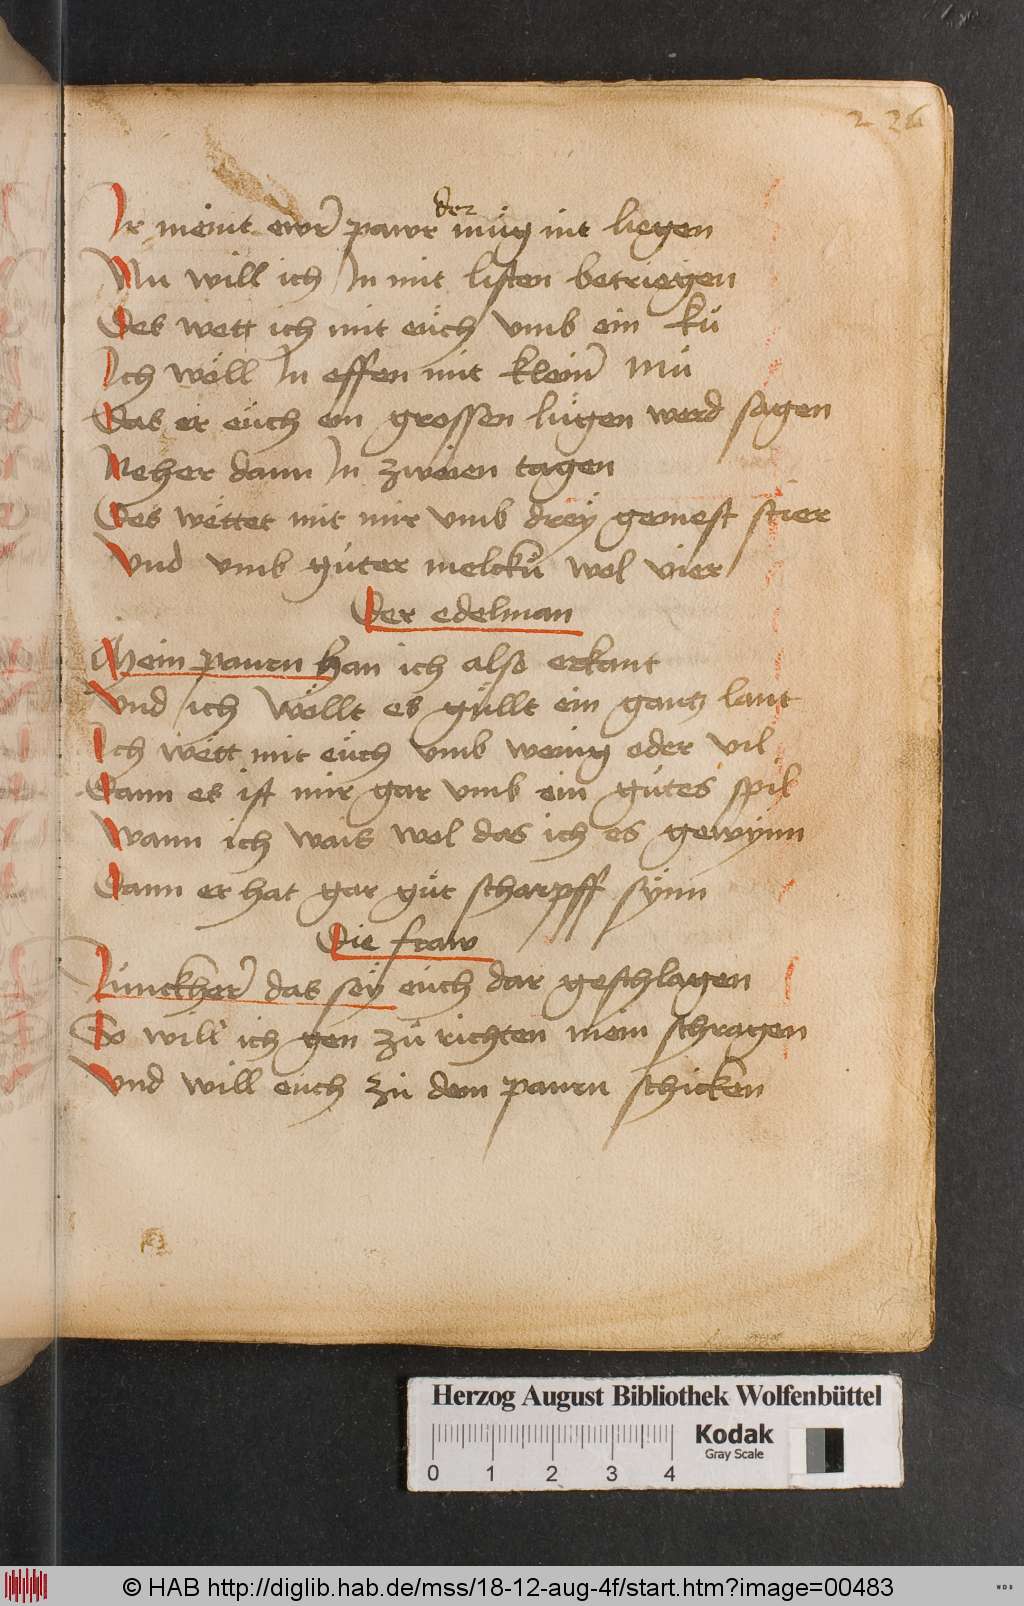 236
Ir meint ewr pawr der müg nit liegen
Nu will ich In mit listen betriegen
Des wett ich mit eüch vmb ein kü
Ich wöll In effen mit kleiner mü
Das er eüch ein grossen lügen werd sagen
Neher dann In zweien tagen
Des wettet mit mir vmb drey gemest stier
Vnd vmb güter melckü wol vier
Der edelman
Mein paurn han ich also erkant
Vnd ich wöllt es güllt ein gantz lant
Ich wett mit eüch vmb wenig oder vil
Dann es ist mir gar vmb ein gütes spil
Wann ich wais wol das ich es gewynn
Dann er hat gar güt scharpff synn
Die fraw
Junckher das sey eüch dar geschlagen
So will ich gen zü richten mein schragen
Vnd will euch zü dem paurn schicken
Herzog August Bibliothek Wolfenbüttel
0 1 2 3 4
Kodak
Gray Scale
© HAB http://diglib.hab.de/mss/18-12-aug-4f/start.htm?image=00483
WDB